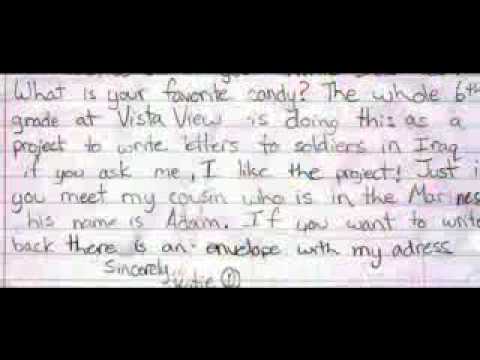 What is your favorite candy? The whole 6th
grade at Vista View is doing this as a
project to write letters to soldiers in Iraq
if you ask me, I like the project! Just i
you meet my cousin who is in the Marines
his name is Adam. If you want to write
back there is an envelope with my adress
Sincerely,
Katie